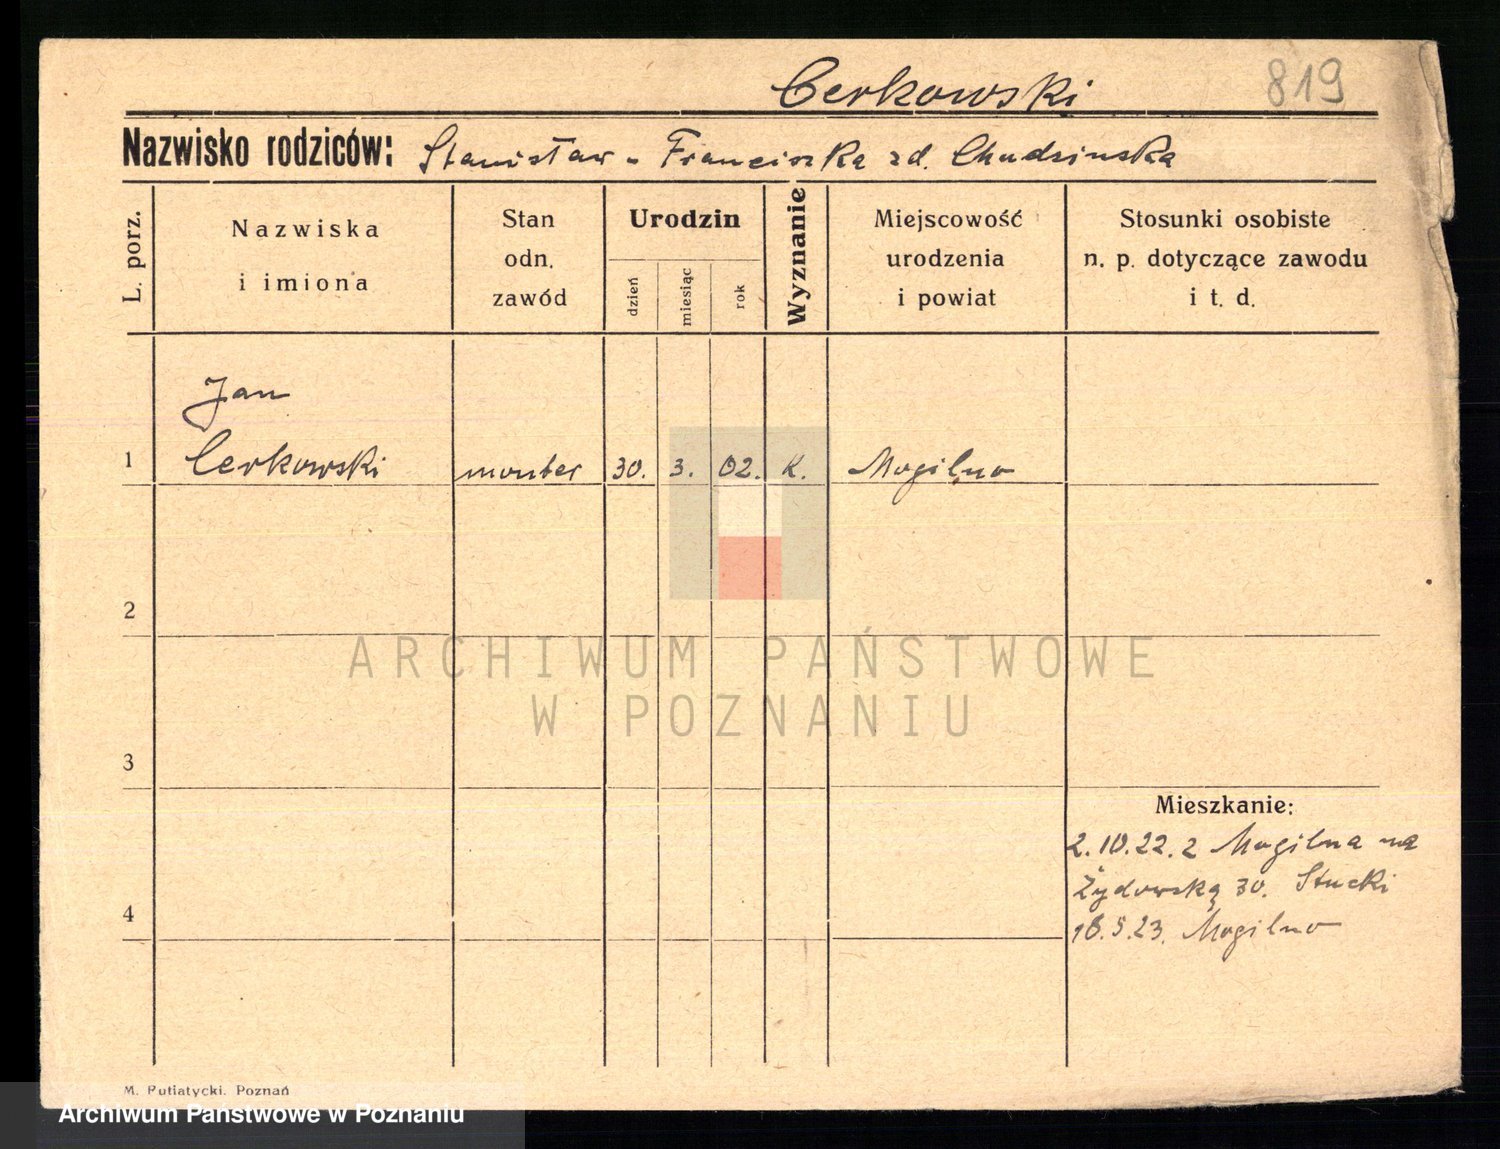 Cerkowski 819
Nazwisko rodziców: Stanisław - Franciszka zd. Chudzinska
L. porz.
Nazwiska
i imiona
Stan
odn.
zawód
Urodzin
dzień
miesiąc
rok
Wyznanie
Miejscowość
urodzenia
i powiat
Stosunki osobiste
n. p. dotyczące zawodu
i t. d.
Jan
1 Cerkowski monter 30. 3. 02. K. Mogilno
2
ARCHIWUM PAŃSTWOWE
W POZNANIU
3
Mieszkanie:
2.10.22. z Mogilna na
Żydowską 30. Stucki
4
16.5.23. Mogilno
M. Putiatycki. Poznań
Archiwum Państwowe w Poznaniu